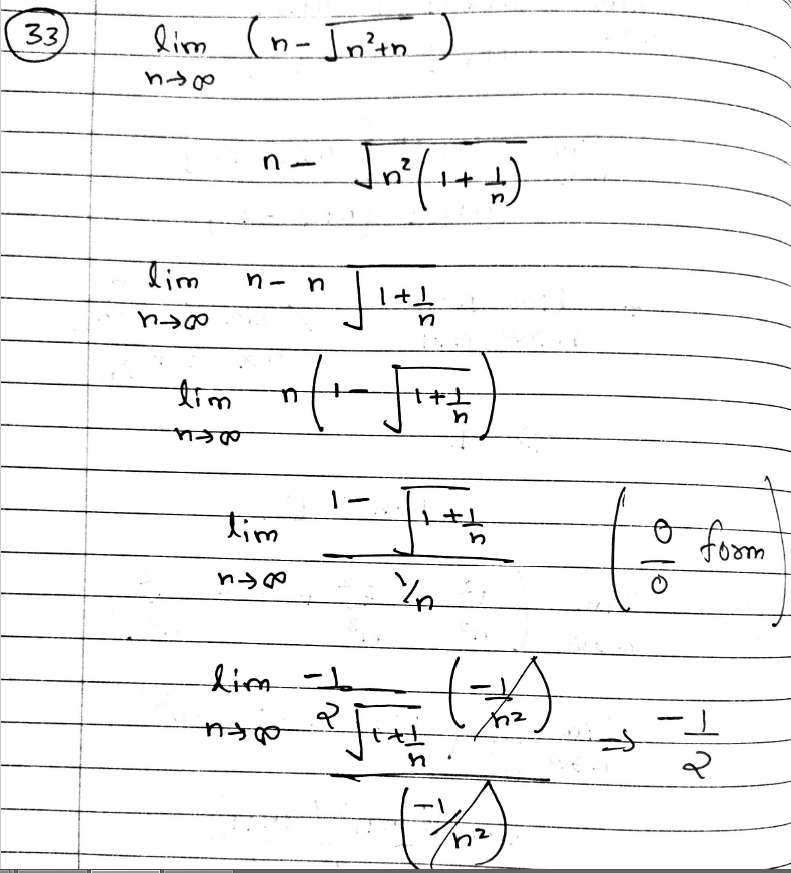 33 lim n→∞ (n - √(n²+n))
n - √(n²(1 + 1/n))
lim n→∞ n - n √(1 + 1/n)
lim n→∞ n(1 - √(1 + 1/n))
lim n→∞ (1 - √(1 + 1/n)) / (1/n) (0/0 form)
lim n→∞ (-1 / (2√(1 + 1/n)) (-1/n²)) / (-1/n²) ⇒ -1/2